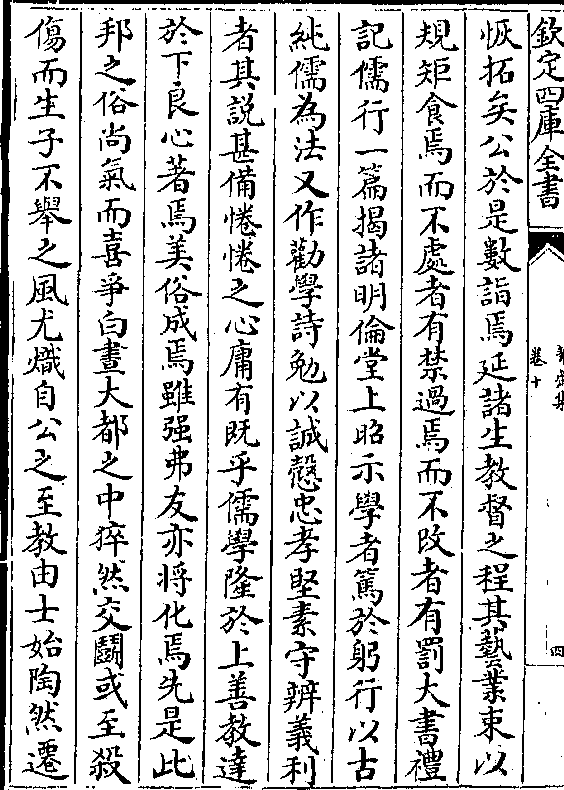 欽定四庫全書
卷十
四
恢拓矣公於是數詣焉延諸生教督之程其藝業束以
規矩食焉而不處者有禁過焉而不改者有罰大書禮
記儒行一篇揭諸明倫堂上昭示學者篤於躬行以古
純儒為法又作勸學詩勉以誠慤忠孝堅素守辨義利
者其説甚備惓惓之心庸有既乎儒學隆於上善教達
於下良心著焉美俗成焉雖强弗友亦將化焉先是此
邦之俗尚氣而喜爭白晝大都之中猝然交鬭或至殺
傷而生子不舉之風尤熾自公之至教由士始陶然遷